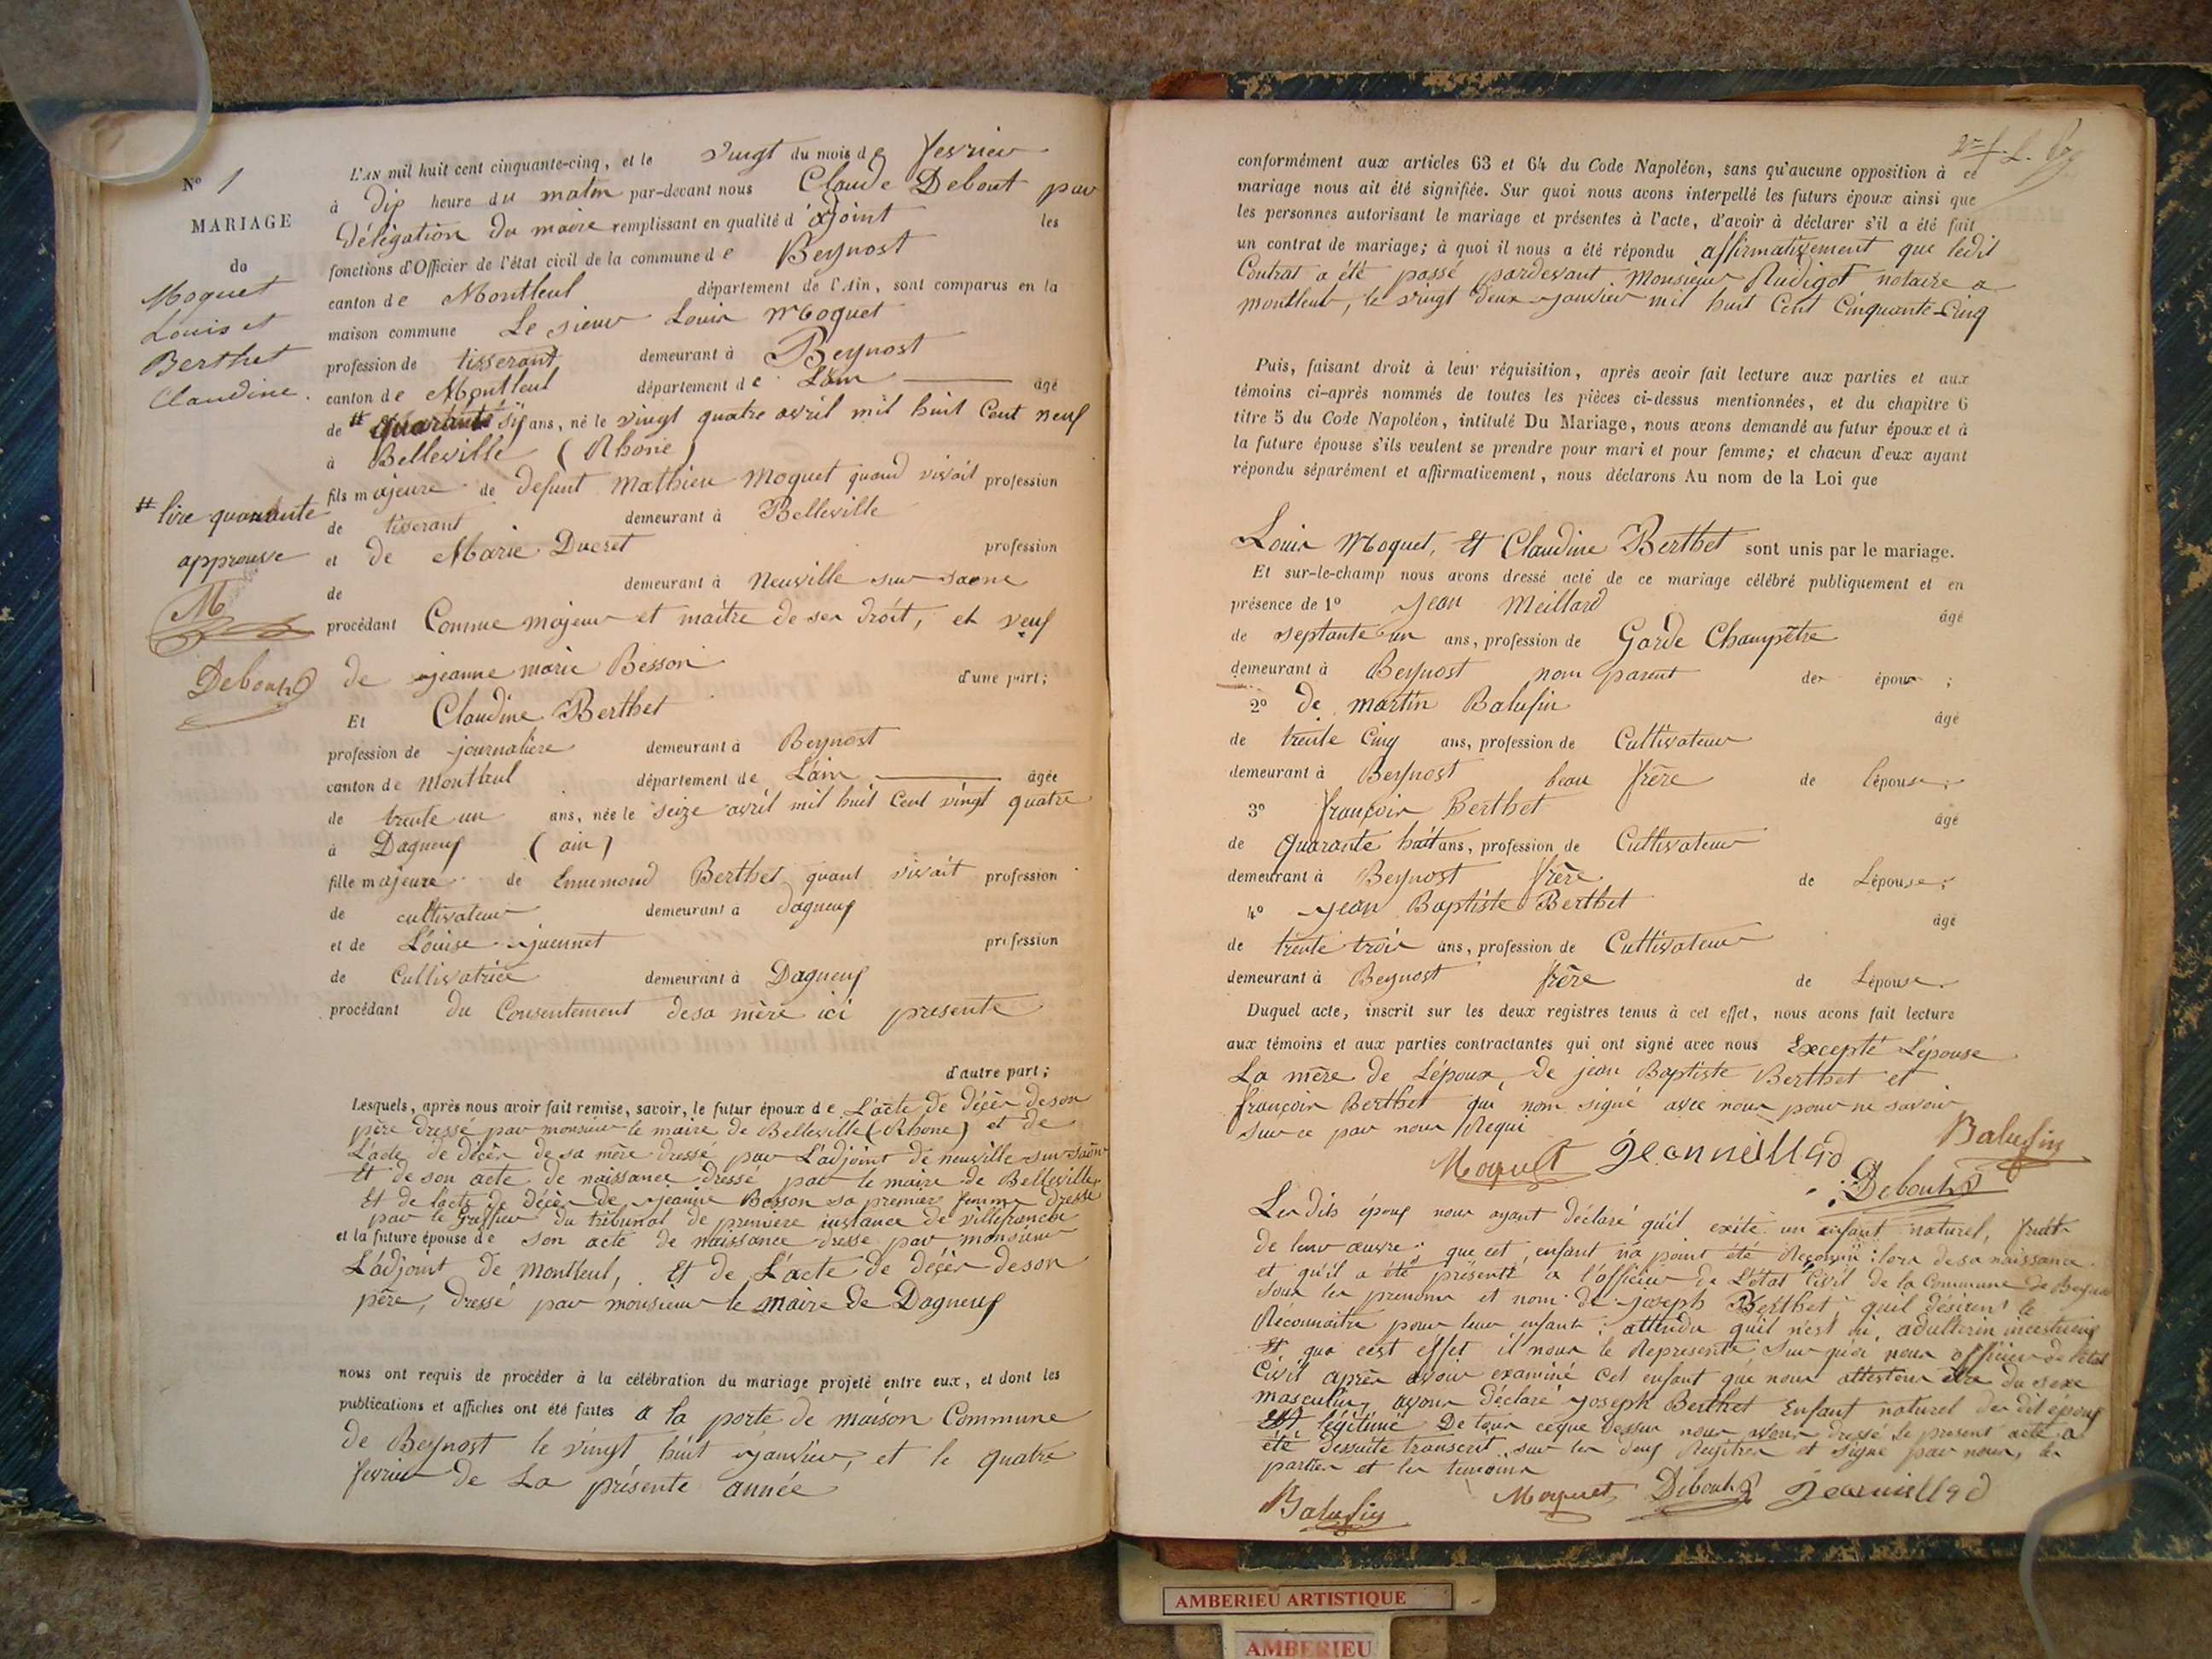 N° 1
MARIAGE
de
Moquet
Louis et
Berthet
Claudine.
# lire quarante
approuvé
M
Debout
L'AN mil huit cent cinquante-cinq, et le vingt du mois de fevrier
à dix heure du matin par-devant nous Claude Debout par
délégation du maire remplissant en qualité d'adjoint les
fonctions d'Officier de l'état civil de la commune de Beynost
canton de Montluel département de l'Ain, sont comparus en la
maison commune Le sieur Louis Moquet
profession de tisserant demeurant à Beynost
canton de Montluel département de L'ain âgé
de # quarante six ans, né le vingt quatre avril mil huit Cent neuf
à Belleville (Rhone)
fils majeure de defunt Mathieu Moquet quand vivait profession
de tisserant demeurant à Belleville
et de Marie Ducret profession
de demeurant à Neuville sur saone
procédant Comme majeur et maitre de ses droit, et veuf
de jeanne marie Besson d'une part;
Et Claudine Berthet
profession de journaliere demeurant à Beynost
canton de Montluel département de L'ain âgée
de trente un ans, née le seize avril mil huit Cent vingt quatre
à Dagneux (ain)
fille majeure de Ennemond Berthet quant vivait profession
de cultivateur demeurant à dagneux
et de Louise juennet profession
de Cultivatrice demeurant à Dagneux
procédant du Consentement de sa mère ici presente
d'autre part;
Lesquels, après nous avoir fait remise, savoir, le futur époux de L'acte de décès de son
père dressé par monsieur le maire de Belleville (Rhone) et de
L'acte de décès de sa mère dressé par L'adjoint de neuville sur saône
Et de son acte de naissance dressé par le maire de Belleville
Et de l'acte de décès de jeanne Besson sa premiere femme dressé
par le greffier du tribunal de premiere instance de villefranche
et la future épouse de son acte de naissance dressé par monsieur
L'adjoint de Montluel, Et de L'acte de décès de son
père, dressé par monsieur le maire de Dagneux
nous ont requis de procéder à la célébration du mariage projeté entre eux, et dont les
publications et affiches ont été faites a la porte de maison Commune
de Beynost le vingt huit janvier, et le quatre
fevrier de La présente année
conformément aux articles 63 et 64 du Code Napoléon, sans qu'aucune opposition à ce
mariage nous ait été signifiée. Sur quoi nous avons interpellé les futurs époux ainsi que
les personnes autorisant le mariage et présentes à l'acte, d'avoir à déclarer s'il a été fait
un contrat de mariage; à quoi il nous a été répondu affirmativement que ledit
Contrat a été passé pardevant Monsieur Rudigot notaire a
montluel, le vingt deux janvier mil huit Cent Cinquante-Cinq
Puis, faisant droit à leur réquisition, après avoir fait lecture aux parties et aux
témoins ci-après nommés de toutes les pièces ci-dessus mentionnées, et du chapitre 6
titre 5 du Code Napoléon, intitulé Du Mariage, nous avons demandé au futur époux et à
la future épouse s'ils veulent se prendre pour mari et pour femme; et chacun d'eux ayant
répondu séparément et affirmativement, nous déclarons Au nom de la Loi que
Louis Moquet, Et Claudine Berthet sont unis par le mariage.
Et sur-le-champ nous avons dressé acte de ce mariage célébré publiquement et en
présence de 1° Jean Meillard âgé
de septante un ans, profession de Garde Champêtre
demeurant à Beynost non parent des époux;
2° de martin Balufin âgé
de trente Cinq ans, profession de Cultivateur
demeurant à Beynost beau frère de L'épouse;
3° françois Berthet âgé
de Quarante huit ans, profession de Cultivateur
demeurant à Beynost frère de L'épouse;
4° jean Baptiste Berthet âgé
de trente trois ans, profession de Cultivateur
demeurant à Beynost frère de L'épouse.
Duquel acte, inscrit sur les deux registres tenus à cet effet, nous avons fait lecture
aux témoins et aux parties contractantes qui ont signé avec nous Excepté L'épouse
La mère de L'époux, de jean Baptiste Berthet et
françois Berthet qui nom signé avec nous pour ne savoir
sur ce par nous Requi
Moquet Jeanmeillard Balufin
Debout
Les dits époux nous ayant déclaré qu'il exite un enfant naturel, fruit
de leur œuvre; que cet enfant n'a point été Reconnu lors de sa naissance
et qu'il a été présenté a l'officier de L'état Civil de la Commune de Beynost
sous les prenoms et nom de joseph Berthet; quil désirent le
Réconnaitre pour leur enfant; attendu qu'il n'est ni adulterin incestueux
Et qua cest éffet il nous le Represente sur quoi nous officier de l'état
Civil après avoir examiné Cet enfant qué nous attestons être du sexe
masculin, avons déclaré joseph Berthet Enfant naturel des dit époux
Est légitimé De tous ceque dessus nous avons dressé le présent acte a
été dessuite transcrit sur les deux Registres et signé par nous, les
parties et les temoins
Balufin Moquet Debout Jeanmeillard
AMBERIEU ARTISTIQUE
AMBERIEU